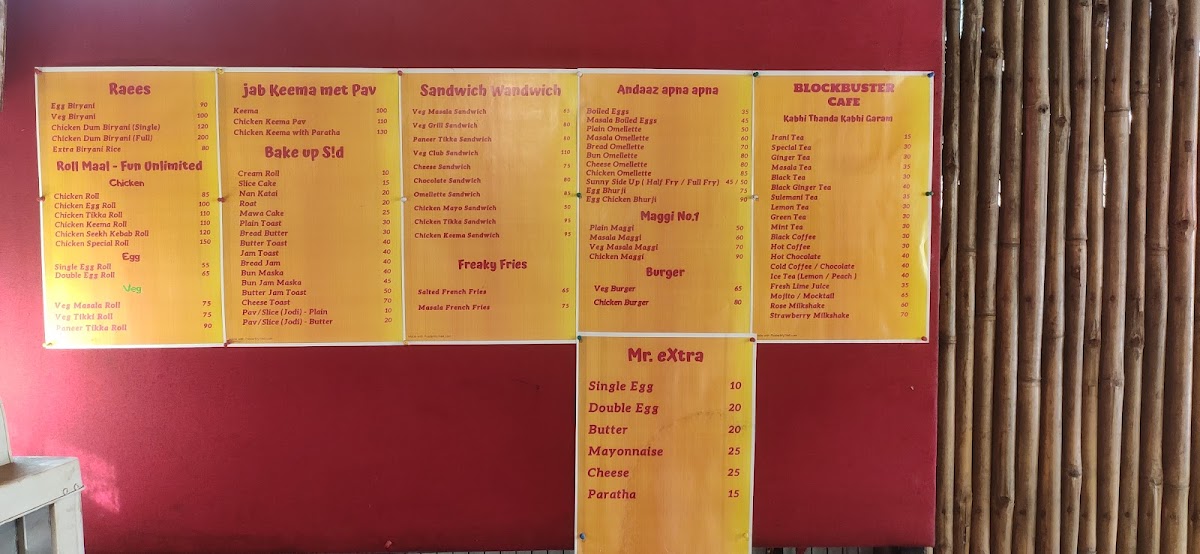 Raees
Egg Biryani 90
Veg Biryani 100
Chicken Dum Biryani (Single) 120
Chicken Dum Biryani (Full) 200
Extra Biryani Rice 80
Roll Maal - Fun Unlimited
Chicken
Chicken Roll 85
Chicken Egg Roll 100
Chicken Tikka Roll 110
Chicken Keema Roll 110
Chicken Seekh Kebab Roll 120
Chicken Special Roll 150
Egg
Single Egg Roll 55
Double Egg Roll 65
Veg
Veg Masala Roll 75
Veg Tikki Roll 75
Paneer Tikka Roll 90
jab Keema met Pav
Keema 100
Chicken Keema Pav 110
Chicken Keema with Paratha 130
Bake up S!d
Cream Roll 10
Slice Cake 15
Nan Katai 20
Roat 20
Mawa Cake 25
Plain Toast 30
Bread Butter 30
Butter Toast 40
Jam Toast 40
Bread Jam 40
Bun Maska 40
Bun Jam Maska 45
Butter Jam Toast 50
Cheese Toast 70
Pav/Slice (Jodi) - Plain 10
Pav/Slice (Jodi) - Butter 20
Sandwich Wandwich
Veg Masala Sandwich
Veg Grill Sandwich 60
Paneer Tikka Sandwich 80
Veg Club Sandwich 110
Cheese Sandwich 75
Chocolate Sandwich 80
Omellette Sandwich 85
Chicken Mayo Sandwich 80
Chicken Tikka Sandwich 95
Chicken Keema Sandwich 95
Freaky Fries
Salted French Fries 65
Masala French Fries 75
Andaaz apna apna
Boiled Eggs 35
Masala Boiled Eggs 45
Plain Omellette 50
Masala Omellette 60
Bread Omellette 70
Bun Omellette 80
Cheese Omellette 80
Chicken Omellette 85
Sunny Side Up ( Half Fry / Full Fry) 45 / 50
Egg Bhurji 75
Egg Chicken Bhurji 90
Maggi No.1
Plain Maggi 50
Masala Maggi 60
Veg Masala Maggi 70
Chicken Maggi 90
Burger
Veg Burger 65
Chicken Burger 80
BLOCKBUSTER
CAFE
Kabhi Thanda Kabhi Garam
Irani Tea 15
Special Tea 30
Ginger Tea 30
Masala Tea 35
Black Tea 30
Black Ginger Tea 40
Sulemani Tea 35
Lemon Tea 30
Green Tea 30
Mint Tea 30
Black Coffee 30
Hot Coffee 30
Hot Chocolate 40
Cold Coffee / Chocolate 40
Ice Tea (Lemon / Peach ) 40
Fresh Lime Juice 35
Mojito / Mocktail 65
Rose Milkshake 60
Strawberry Milkshake 70
Mr. eXtra
Single Egg 10
Double Egg 20
Butter 20
Mayonnaise 25
Cheese 25
Paratha 15